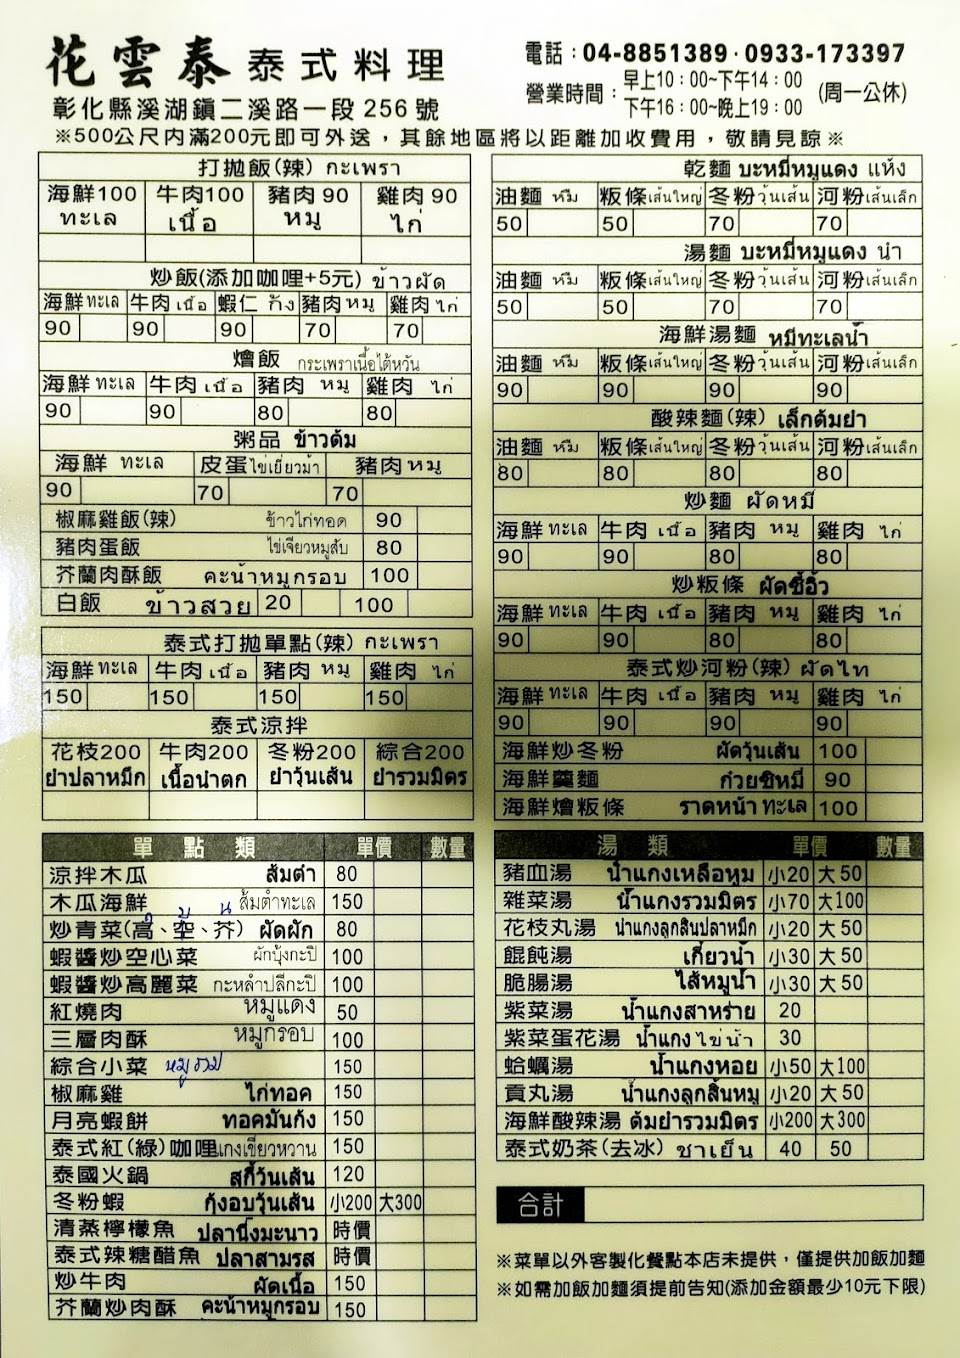 花雲泰 泰式料理
彰化縣溪湖鎮二溪路一段256號
電話：04-8851389·0933-173397
營業時間：早上10：00~下午14：00
下午16：00~晚上19：00
(周一公休)
※500公尺內滿200元即可外送，其餘地區將以距離加收費用，敬請見諒※
打拋飯(辣) กะเพรา
海鮮100 牛肉100 豬肉90 雞肉90
ทะเล เนื้อ หมู ไก่
炒飯(添加咖哩+5元) ข้าวผัด
海鮮ทะเล 牛肉เนื้อ 蝦仁 กุ้ง 豬肉หมู 雞肉ไก่
90 90 90 70 70
燴飯 กระเพราเนื้อไต้หวัน
海鮮ทะเล 牛肉เนื้อ 豬肉 หมู 雞肉 ไก่
90 90 80 80
粥品 ข้าวต้ม
海鮮 ทะเล 皮蛋ไข่เยี่ยวม้า 豬肉หมู
90 70 70
椒麻雞飯(辣) ข้าวไก่ทอด 90
豬肉蛋飯 ไข่เจียวหมูสับ 80
芥蘭肉酥飯 คะน้าหมูกรอบ 100
白飯 ข้าวสวย 20 100
泰式打拋單點(辣) กะเพรา
海鮮ทะเล 牛肉เนื้อ 豬肉 หมู 雞肉 ไก่
150 150 150 150
泰式涼拌
花枝200 牛肉200 冬粉200 綜合200
ยำปลาหมึก เนื้อน้ำตก ยำวุ้นเส้น ยำรวมมิตร
單點類 單價 數量
涼拌木瓜 ส้มตำ 80
木瓜海鮮 ส้มตำทะเล 150
炒青菜(高、空、芥) ผัดผัก 80
蝦醬炒空心菜 ผักบุ้งกะปิ 100
蝦醬炒高麗菜 กะหล่ำปลีกะปิ 100
紅燒肉 หมูแดง 50
三層肉酥 หมูกรอบ 100
綜合小菜 หมูรวม 150
椒麻雞 ไก่ทอด 150
月亮蝦餅 ทอดมันกุ้ง 150
泰式紅(綠)咖哩แกงเขียวหวาน 150
泰國火鍋 สุกี้วุ้นเส้น 120
冬粉蝦 กุ้งอบวุ้นเส้น 小200 大300
清蒸檸檬魚 ปลานึ่งมะนาว 時價
泰式辣糖醋魚 ปลาสามรส 時價
炒牛肉 ผัดเนื้อ 150
芥蘭炒肉酥 คะน้าหมูกรอบ 150
乾麵 บะหมี่หมูแดง แห้ง
油麵 หมี่ 粄條เส้นใหญ่ 冬粉วุ้นเส้น 河粉เส้นเล็ก
50 50 70 70
湯麵 บะหมี่หมูแดง น้ำ
油麵 หมี่ 粄條เส้นใหญ่ 冬粉วุ้นเส้น 河粉เส้นเล็ก
50 50 70 70
海鮮湯麵 หมี่ทะเลน้ำ
油麵 หมี่ 粄條เส้นใหญ่ 冬粉วุ้นเส้น 河粉เส้นเล็ก
90 90 90 90
酸辣麵(辣) เล็กต้มยำ
油麵 หมี่ 粄條เส้นใหญ่ 冬粉วุ้นเส้น 河粉เส้นเล็ก
80 80 80 80
炒麵 ผัดหมี่
海鮮ทะเล 牛肉เนื้อ 豬肉 หมู 雞肉 ไก่
90 90 80 80
炒粄條 ผัดซีอิ๊ว
海鮮ทะเล 牛肉เนื้อ 豬肉 หมู 雞肉 ไก่
90 90 80 80
泰式炒河粉(辣) ผัดไท
海鮮ทะเล 牛肉เนื้อ 豬肉 หมู 雞肉 ไก่
90 90 90 90
海鮮炒冬粉 ผัดวุ้นเส้น 100
海鮮羹麵 ก๋วยซิหมี่ 90
海鮮燴粄條 ราดหน้าทะเล 100
湯類 單價 數量
豬血湯 น้ำแกงเหลือหมู 小20 大50
雜菜湯 น้ำแกงรวมมิตร 小70 大100
花枝丸湯 น้ำแกงลูกสิ้นปลาหมึก 小20 大50
餛飩湯 เกี๊ยวน้ำ 小30 大50
脆腸湯 ไส้หมูน้ำ 小30 大50
紫菜湯 น้ำแกงสาหร่าย 20
紫菜蛋花湯 น้ำแกงไข่น้ำ 30
蛤蠣湯 น้ำแกงหอย 小50 大100
貢丸湯 น้ำแกงลูกสิ้นหมู 小20 大50
海鮮酸辣湯 ต้มยำรวมมิตร 小200 大300
泰式奶茶(去冰) ชาเย็น 40 50
合計
※菜單以外客製化餐點本店未提供，僅提供加飯加麵
※如需加飯加麵須提前告知(添加金額最少10元下限)